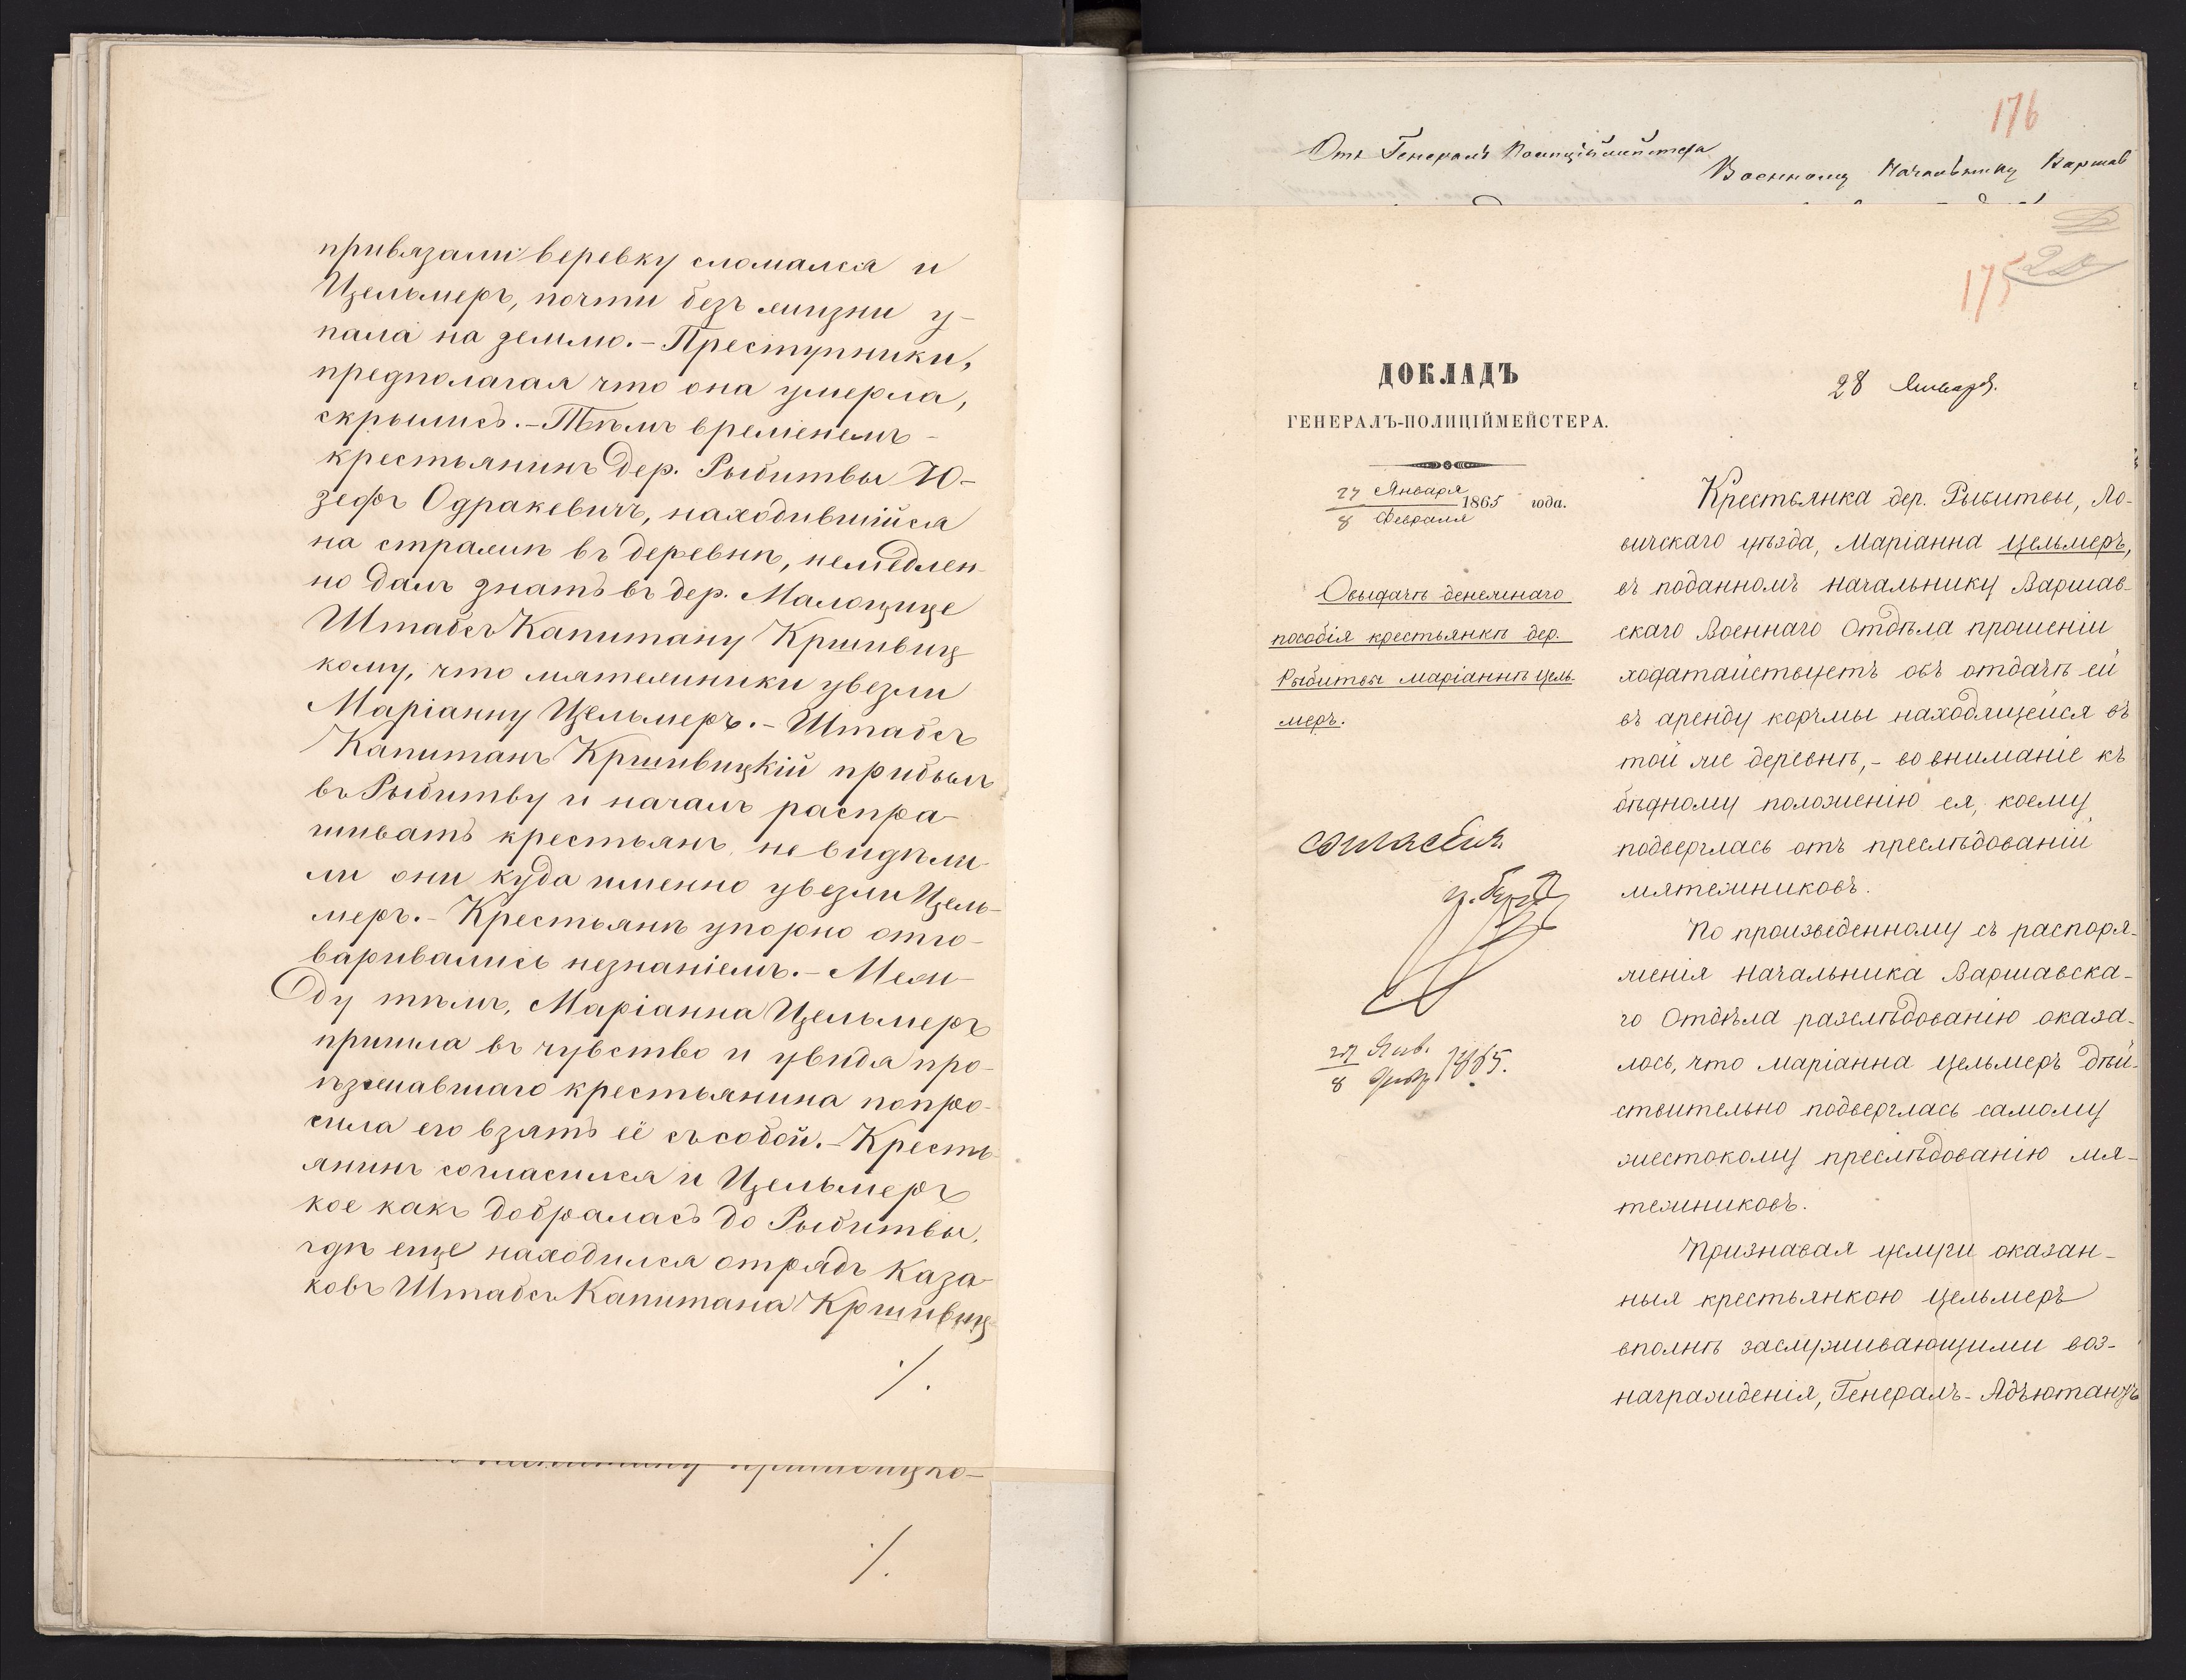 привязали веревку сломался и
Цельмеръ, почти безъ жизни у-
пала на землю. - Преступники,
предполагая что она умерла,
скрылись. - Тѣмъ временемъ -
крестьянинъ дер. Рыбитвы Ю-
зефъ Одракевичъ, находившійся
на стражѣ въ деревнѣ, немедлен
но далъ знать въ дер. Малошице
Штабсъ Капитану Кршивиц
кому, что мятежники увезли
Маріанну Цельмеръ. - Штабсъ
Капитанъ Кршивицкій прибылъ
въ Рыбитву и началъ распра-
шивать крестьянъ не видѣли
ли они куда именно увезли Цель-
меръ. - Крестьяне упорно отго-
варивались незнаніемъ. - Меж-
ду тѣмъ, Маріанна Цельмеръ
пришла въ чувство и увидя про-
ѣзжавшаго крестьянина попро-
сила его взять её съ собой. - Кресть-
янинъ согласился и Цельмеръ
кое какъ добралась до Рыбитвы,
гдѣ еще находился отрядъ Каза-
ковъ Штабсъ Капитана Кршивиц
·/.
·/.
176
Отъ Генералъ Полиціймейстера
Военному Начальнику Варшав
175
ДОКЛАДЪ
ГЕНЕРАЛЪ-ПОЛИЦІЙМЕЙСТЕРА.
28 Января.
27 Января
8 Февраля
1865 года.
О выдачѣ денежнаго
пособія крестьянкѣ дер.
Рыбитвы Маріаннѣ Цель-
меръ.
Согласенъ.
27 Янв.
8 Февр. 1865.
Крестьянка дер. Рыбитвы, Ло-
вичскаго уѣзда, Маріанна Цельмеръ,
въ поданномъ Начальнику Варшав-
скаго Военнаго Отдѣла прошеніи
ходатайствуетъ объ отдачѣ ей
въ аренду корчмы находящейся въ
той же деревнѣ, - во вниманіе къ
бѣдному положенію ея, коему
подверглась отъ преслѣдованій
мятежниковъ.
По произведенному съ распоря-
женія Начальника Варшавска-
го Отдѣла разслѣдованію оказа-
лось, что Маріанна Цельмеръ дѣй-
ствительно подверглась самому
жестокому преслѣдованію мя-
тежниковъ.
Признавая услуги оказан-
ныя крестьянкою Цельмеръ
вполнѣ заслуживающими воз-
награжденія, Генералъ-Адъютантъ